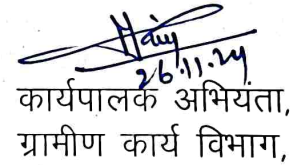 26.11.24
कार्यपालक अभियंता,
ग्रामीण कार्य विभाग,